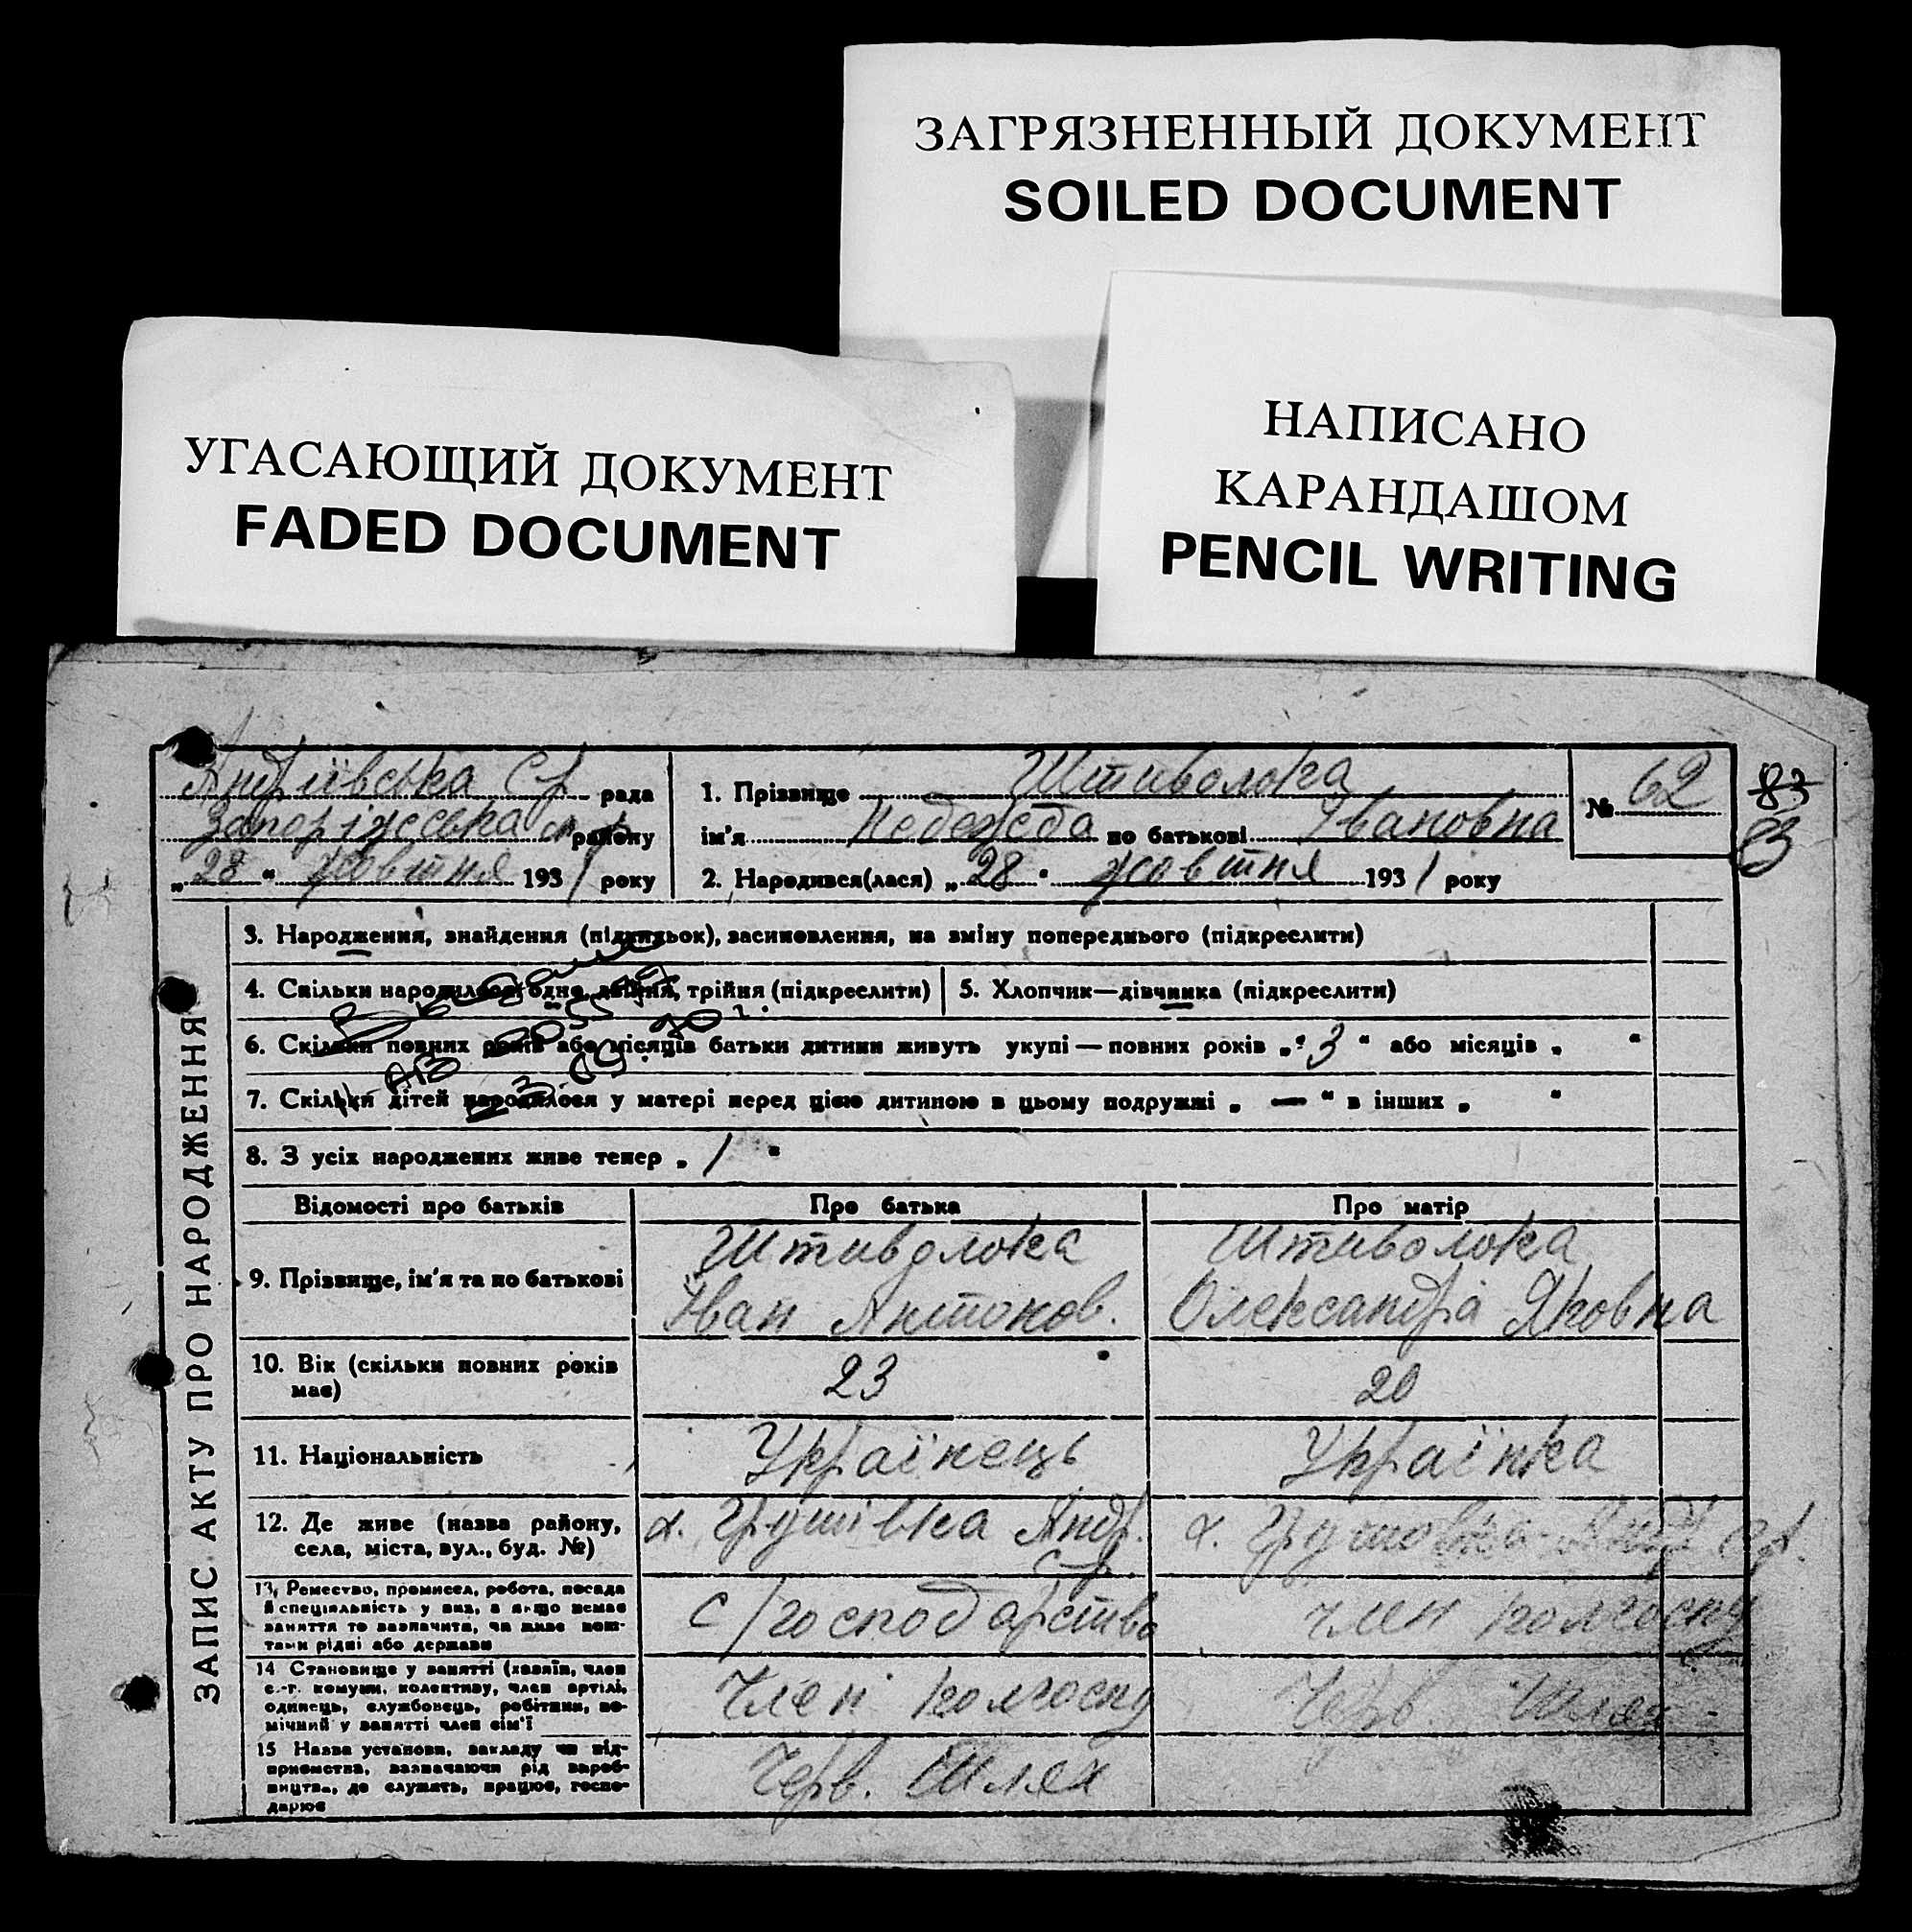 ЗАГРЯЗНЕННЫЙ ДОКУМЕНТ
SOILED DOCUMENT
НАПИСАНО
КАРАНДАШОМ
PENCIL WRITING
УГАСАЮЩИЙ ДОКУМЕНТ
FADED DOCUMENT
Андріївська С/р рада
Запоріжська району
„28“ жовтня 1931 року
1. Прізвище Штиволока
ім'я Недежеда по батькові Івановна
2. Народився(лася) „28“ жовтня 1931 року
№ 62
83
ЗАПИС АКТУ ПРО НАРОДЖЕННЯ
3. Народження, знайдення (підкидьок), засиновлення, на зміну попереднього (підкреслити)
4. Скільки народилося: одно, двійня, трійня (підкреслити)
5. Хлопчик—дівчинка (підкреслити)
6. Скільки повних років або місяців батьки дитини живуть укупі — повних років „3“ або місяців „ “
7. Скільки дітей народилося у матері перед цією дитиною в цьому подружжі „ — “ в інших „ “
8. З усіх народжених живе тепер „ 1 “
Відомості про батьків Про батька Про матір
9. Прізвище, ім'я та по батькові
Штиволока
Іван Антонов.
Штиволока
Олександра Яковна
10. Вік (скільки повних років
має)
23
20
11. Національність
Українець
Українка
12. Де живе (назва району,
села, міста, вул., буд. №)
х. Грушівка Андр.
с/р.
х. Грушовка Анд. с/р.
13. Ремество, промисел, робота, посада
й спеціяльність у них, а якщо немає
заняття то зазначити, чи живе кош-
тами рідні або держави
с/господарство
член колгоспу
14 Становище у занятті (хазяїн, член
с.-г. комуни, колективу, член артілі,
одинець, службовець, робітник, по-
мічний у занятті член сім'ї
Член колгоспу
Черв. Шлях
15 Назва установи, закладу чи під-
приємства, зазначаючи рід вироб-
ництва, де служить, працює, госпо-
дарює
Черв. Шлях